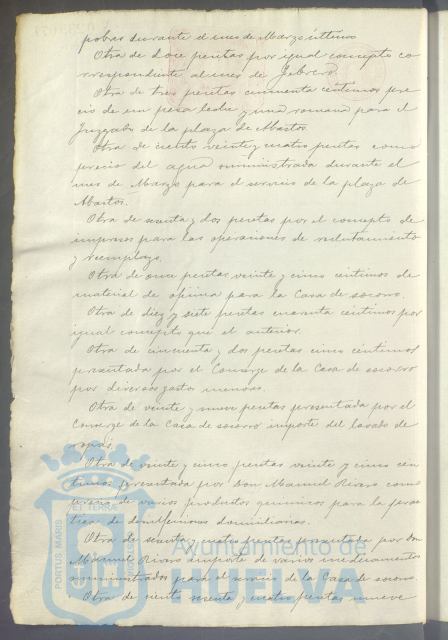 pobres durante el mes de Marzo último
Otra de doce pesetas por igual concepto co
rrespondiente al mes de Febrero.
Otra de tres pesetas cincuenta centimos pre
cio de un pesa leche y una romana para el
Juzgado de la plaza de Abastos.
Otra de ciento veinte y cuatro pesetas como
precio del agua suministrada durante el
mes de Marzo para el servicio de la plaza de
Abastos.
Otra de sesenta y dos pesetas por el concepto de
impresos para las operaciones de reclutamiento
y reemplazo.
Otra de once pesetas veinte y cinco centimos de
material de oficina para la Casa de socorro.
Otra de diez y siete pesetas cuarenta centimos por
igual concepto que el anterior.
Otra de cincuenta y dos pesetas cinco centimos
presentada por el Conserge de la Casa de socorro
por diversos gastos menores.
Otra de veinte y nueve pesetas presentada por el
Conserge de la Casa de socorro importe del lavado de
ropas.
Otra de veinte y cinco pesetas veinte y cinco cen
timos presentada por Don Manuel Rivero como
precio de varios productos quimicos para la prac
tica de desinfecciones domiciliarias.
Otra de sesenta y cuatro pesetas presentada por don
Manuel Rivero importe de varios medicamentos
suministrados para el servicio de la Casa de socorro.
Otra de ciento sesenta y cuatro pesetas nueve
PORTUS MARIS
ET TERRÆ
Ayuntamiento de
HUELVA